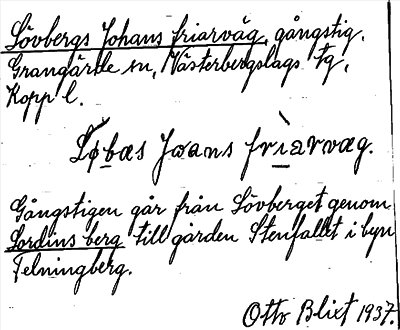 Lövbergs Johans friarväg, gångstig,
Grangärde sn, Västerbergslags Fg,
Kopp l.
Lø̆bæs Joans frìarvæg.
Gångstigen går från Lövberget genom
Lordins berg till gården Stenfallet i byn
Felningberg.
Otto Blixt 1937.